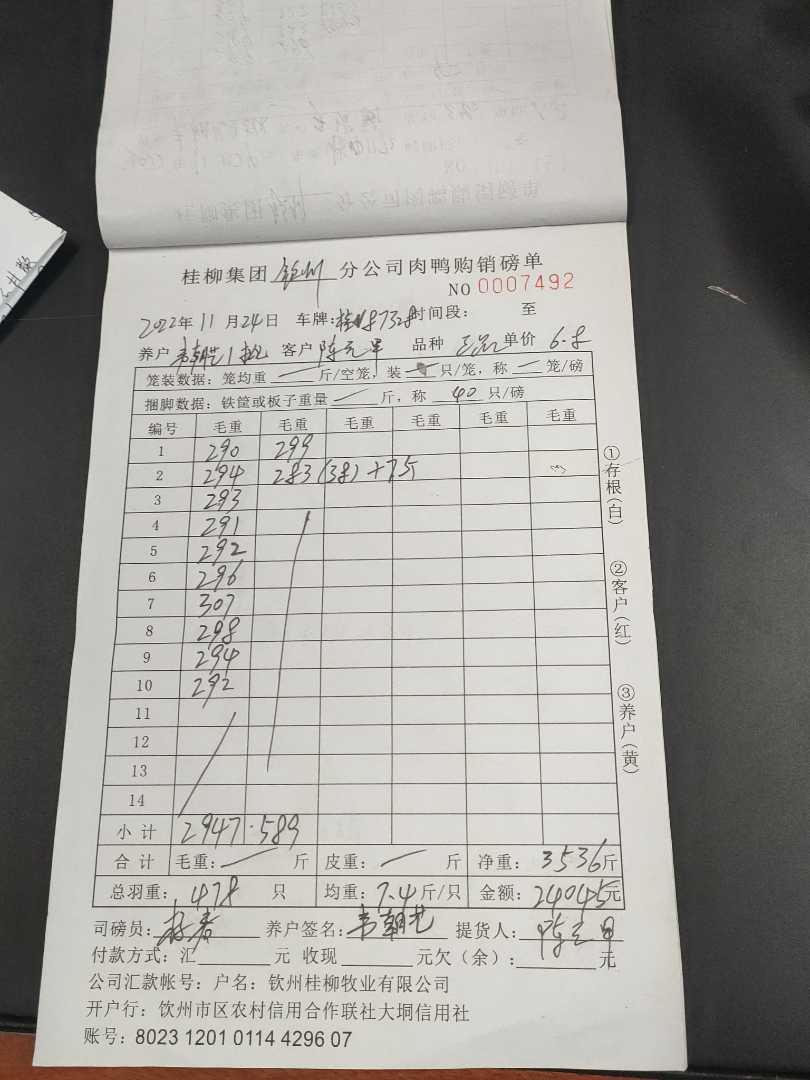 桂柳集团 钦州 分公司肉鸭购销磅单
NO 0007492
2022年 11月 24日 车牌: 时间段: 至
养户 客户 品种 单价 6.8
笼装数据: 笼均重 斤/空笼, 装 只/笼, 称 一 笼/磅
捆脚数据: 铁筐或板子重量 斤, 称 40 只/磅
编号 毛重 毛重 毛重 毛重 毛重 毛重
1 290 299
2 294 283 (38) +7斤
3 293
4 291
5 292
6 296
7 307
8 298
9 294
10 292
11
12
13
14
小计 2947 589
合计 毛重: 斤 皮重: 斤 净重: 3536斤
总羽重: 478 只 均重: 7.4斤/只 金额: 24045元
司磅员: 养户签名: 提货人:
付款方式: 汇 元 收现 元欠(余): 元
公司汇款帐号: 户名: 钦州桂柳牧业有限公司
开户行: 饮州市区农村信用合作联社大垌信用社
账号: 8023 1201 0114 4296 07
①存根(白)
②客户(红)
③养户(黄)